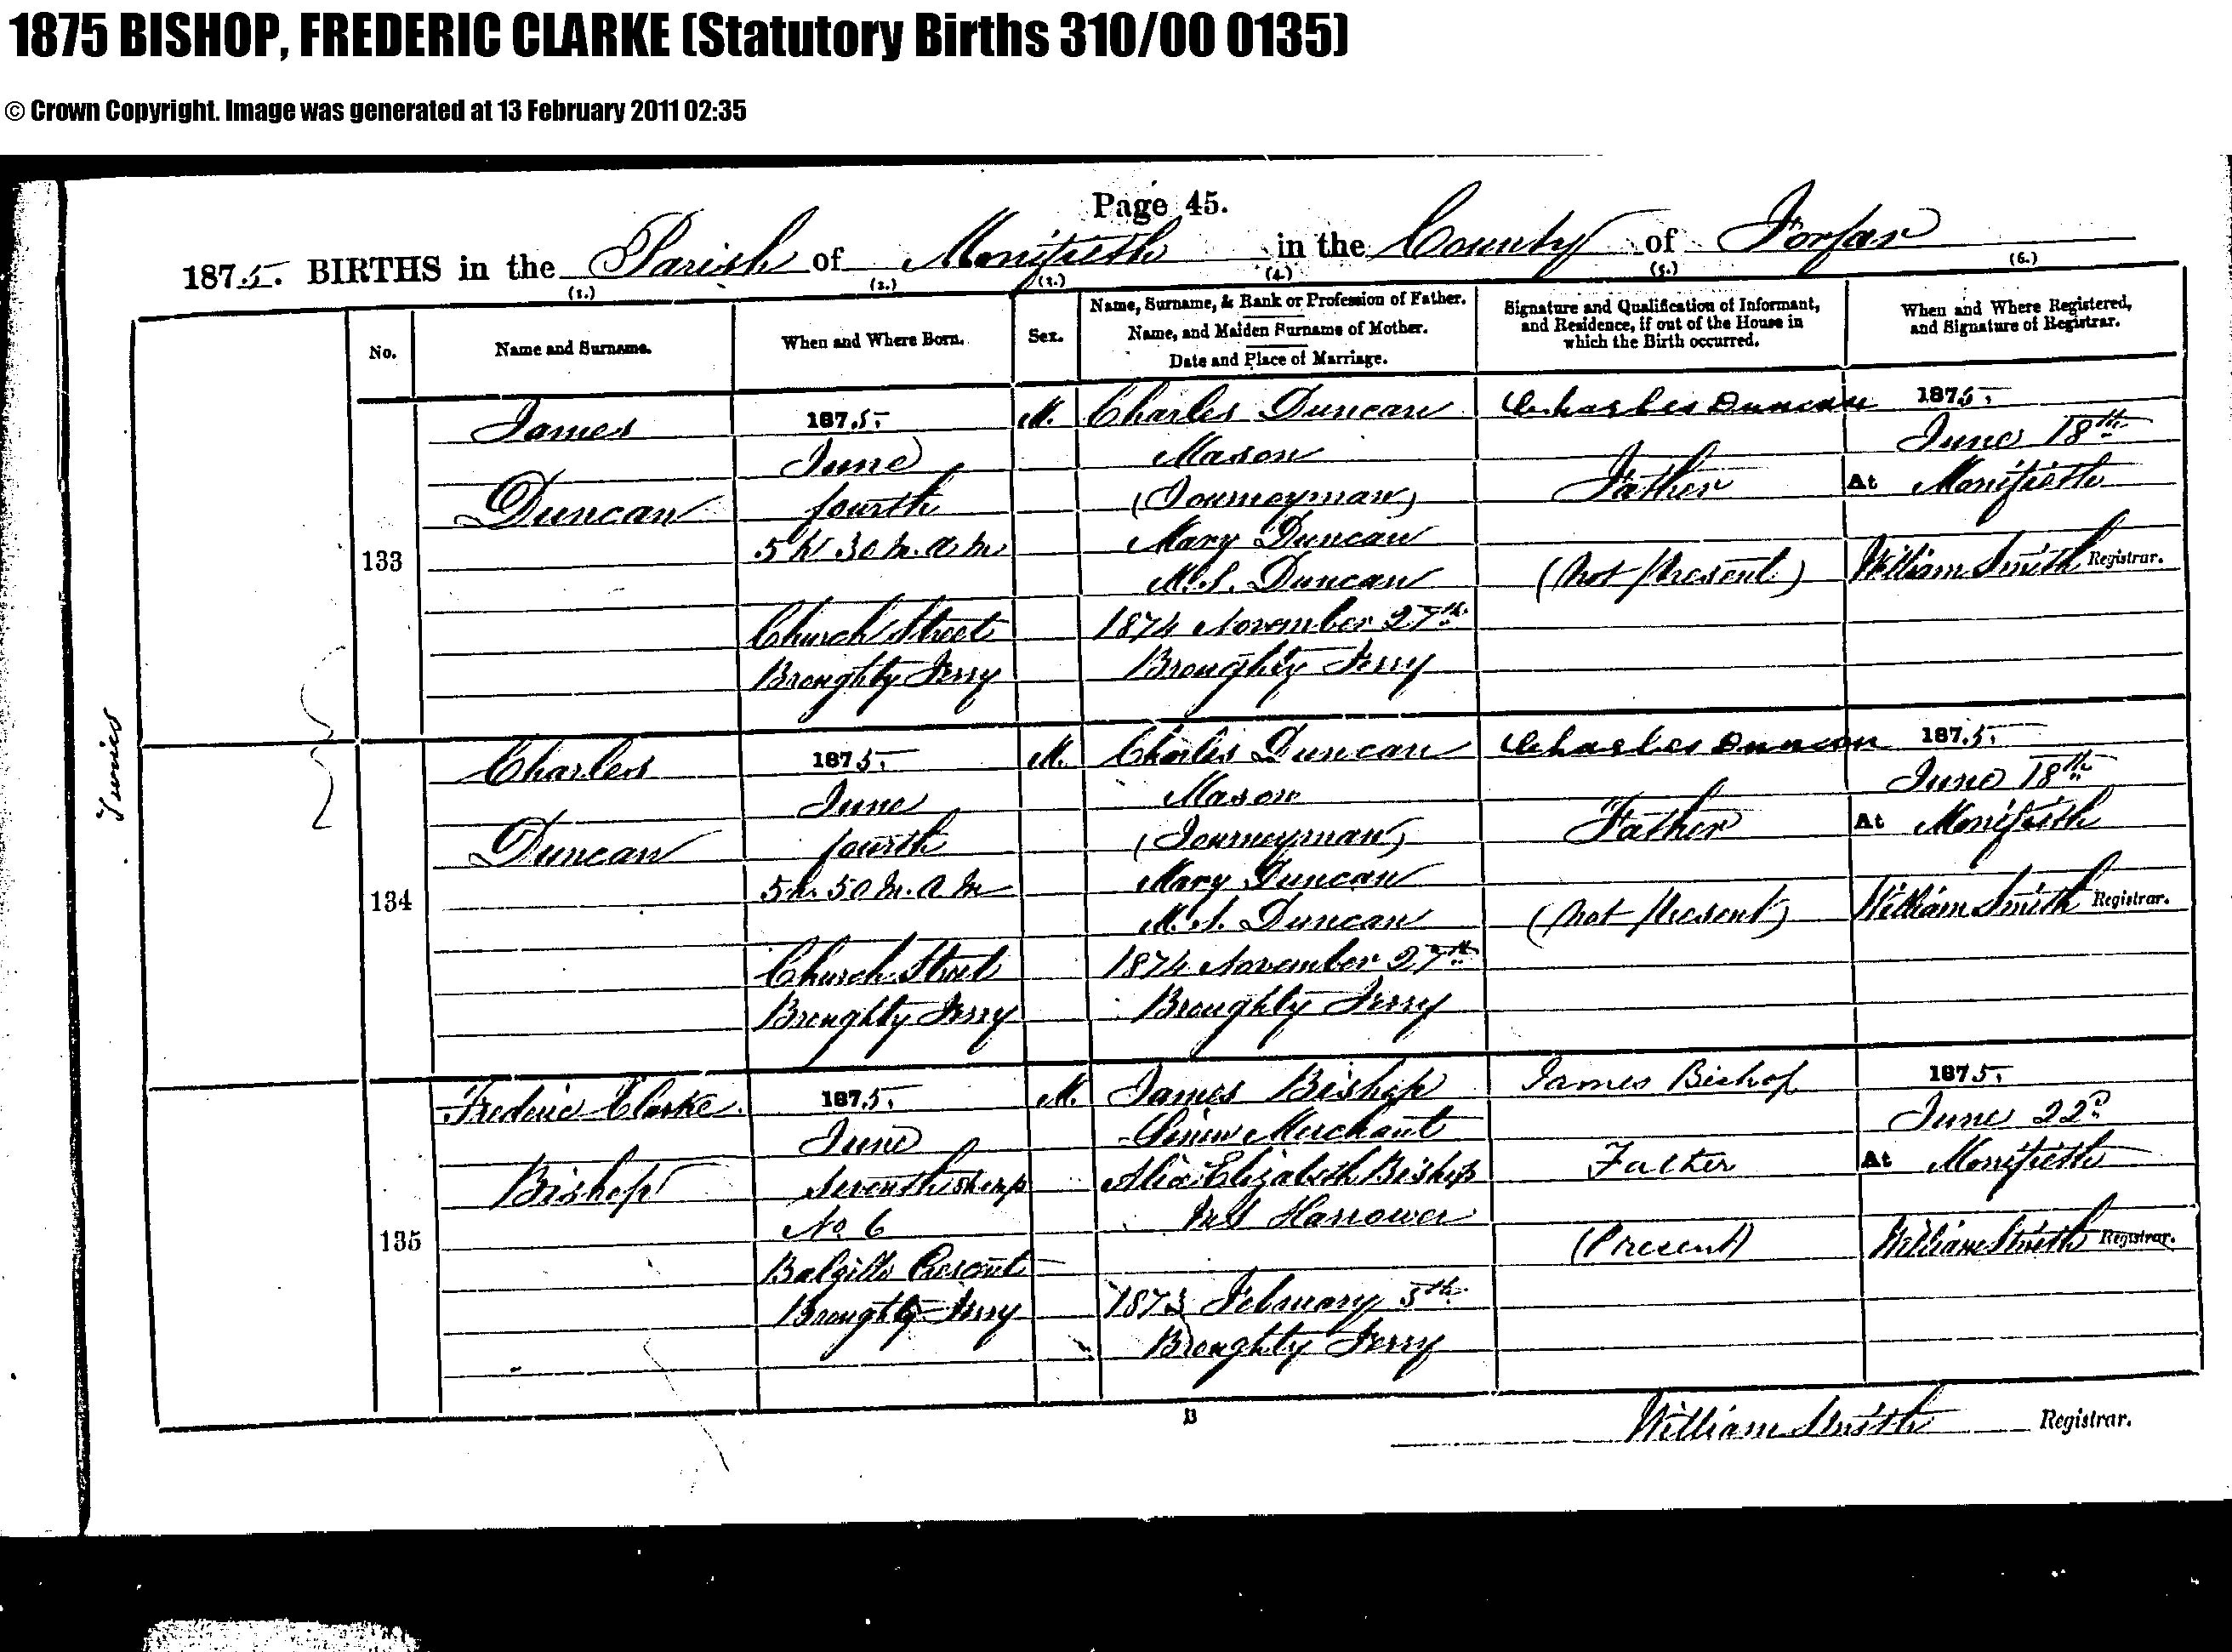 1875 BISHOP, FREDERIC CLARKE (Statutory Births 310/00 0135)
© Crown Copyright. Image was generated at 13 February 2011 02:35
Page 45.
1875. BIRTHS in the Parish of Monifieth in the County of Forfar
(1.) (2.) (3.) (4.) (5.) (6.)
No.
Name and Surname.
When and Where Born.
Sex.
Name, Surname, & Rank or Profession of Father.
Name, and Maiden Surname of Mother.
Date and Place of Marriage.
Signature and Qualification of Informant,
and Residence, if out of the House in
which the Birth occurred.
When and Where Registered,
and Signature of Registrar.
Twins
133
James
Duncan
1875.
June
fourth
5 h 30 m. a m
Church Street
Broughty Ferry
M.
Charles Duncan
Mason
(Journeyman)
Mary Duncan
M.S. Duncan
1874 November 27th
Broughty Ferry
Charles Duncan
Father
(Not Present)
1875.
June 18th
At Monifieth
William Smith Registrar.
134
Charles
Duncan
1875.
June
fourth
5 h. 50 m. a m
Church Street
Broughty Ferry
M.
Charles Duncan
Mason
(Journeyman)
Mary Duncan
M.S. Duncan
1874 November 27th
Broughty Ferry
Charles Duncan
Father
(Not Present)
1875.
June 18th
At Monifieth
William Smith Registrar.
135
Frederic Clarke
Bishop
1875.
June
Seventh
No. 6
Balgillo Crescent
Broughty Ferry
M.
James Bishop
Linen Merchant
Elizabeth Bishop
M S Harrower
1873 February 5th
Broughty Ferry
James Bishop
Father
(Present)
1875.
June 22d
At Monifieth
William Smith Registrar.
B
William Smith Registrar.